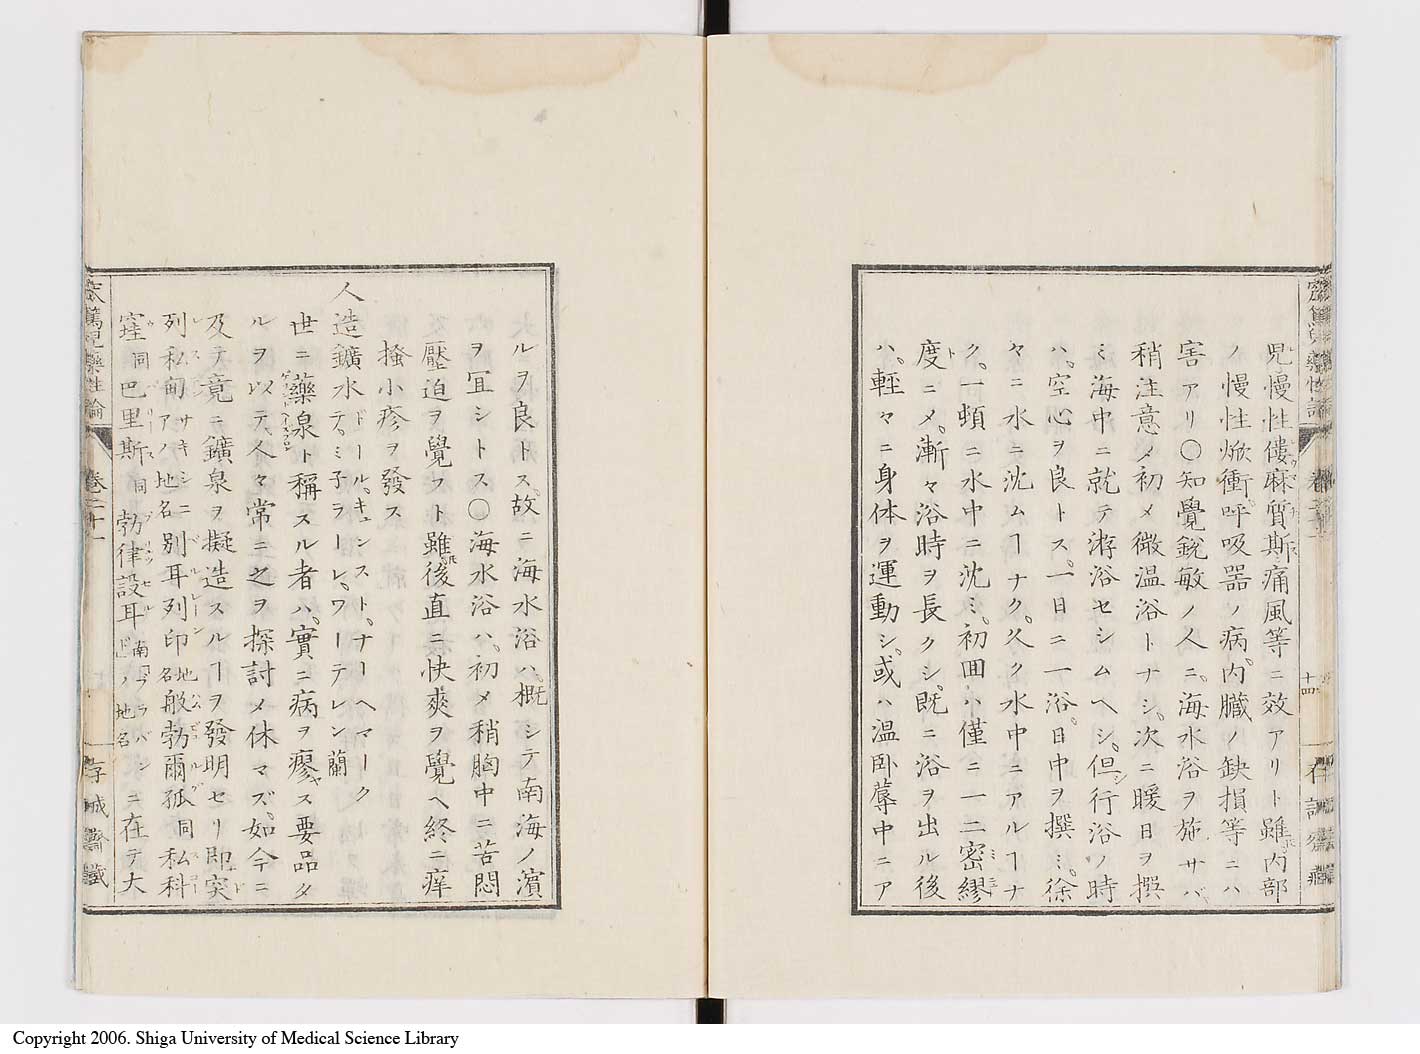 児慢性僂麻質斯痛風等ニ效アリト雖𪜈内部
ノ慢性焮衝呼吸器ノ病、内臓ノ缺損等ニハ
害アリ〇知覺銳敏ノ人ニ、海水浴ヲ施サバ、
稍注意〆初メ微温浴トナシ、次ニ暖日ヲ撰
ミ海中ニ就テ游浴セシムヘシ、但シ行浴ノ時
ハ、空心ヲ良トス、一日ニ一浴、日中ヲ撰ミ、徐
々ニ水ニ沈ムヿナク、久ク水中ニアルヿナ
ク、一頓ニ水中ニ沈ミ、初回ハ僅ニ一二密繆
度ニ〆、漸々浴時ヲ長クシ、既ニ浴ヲ出ル後
ハ、輕々ニ身体ヲ運動シ、或ハ温臥蓐中ニア
十四
ルヲ良トス、故ニ海水浴ハ、概シテ南海ノ濱
ヲ冝シトス〇海水浴ハ、初メ稍胸中ニ苦悶
壓迫ヲ覺フト雖𪜈後直ニ快爽ヲ覺ヘ終ニ痒
搔小疹ヲ發ス
人造鑛水 ドールキュンストナーヘマークテミ子ラーレワーテレン蘭
世ニ藥泉ト稱スル者ハ、實ニ病ヲ療スキ要品タ
ルヲ以テ、人々常ニ之ヲ探討〆休マズ、如今ニ
及テ竟ニ鑛泉ヲ擬造スルヿヲ發明セリ即突
列私甸サキシニアハ地名別耳列印地名般勃爾孤同私科
窪同巴里斯同勃律設耳南ブラバンドノ地名ニ在テ大
巻二十一